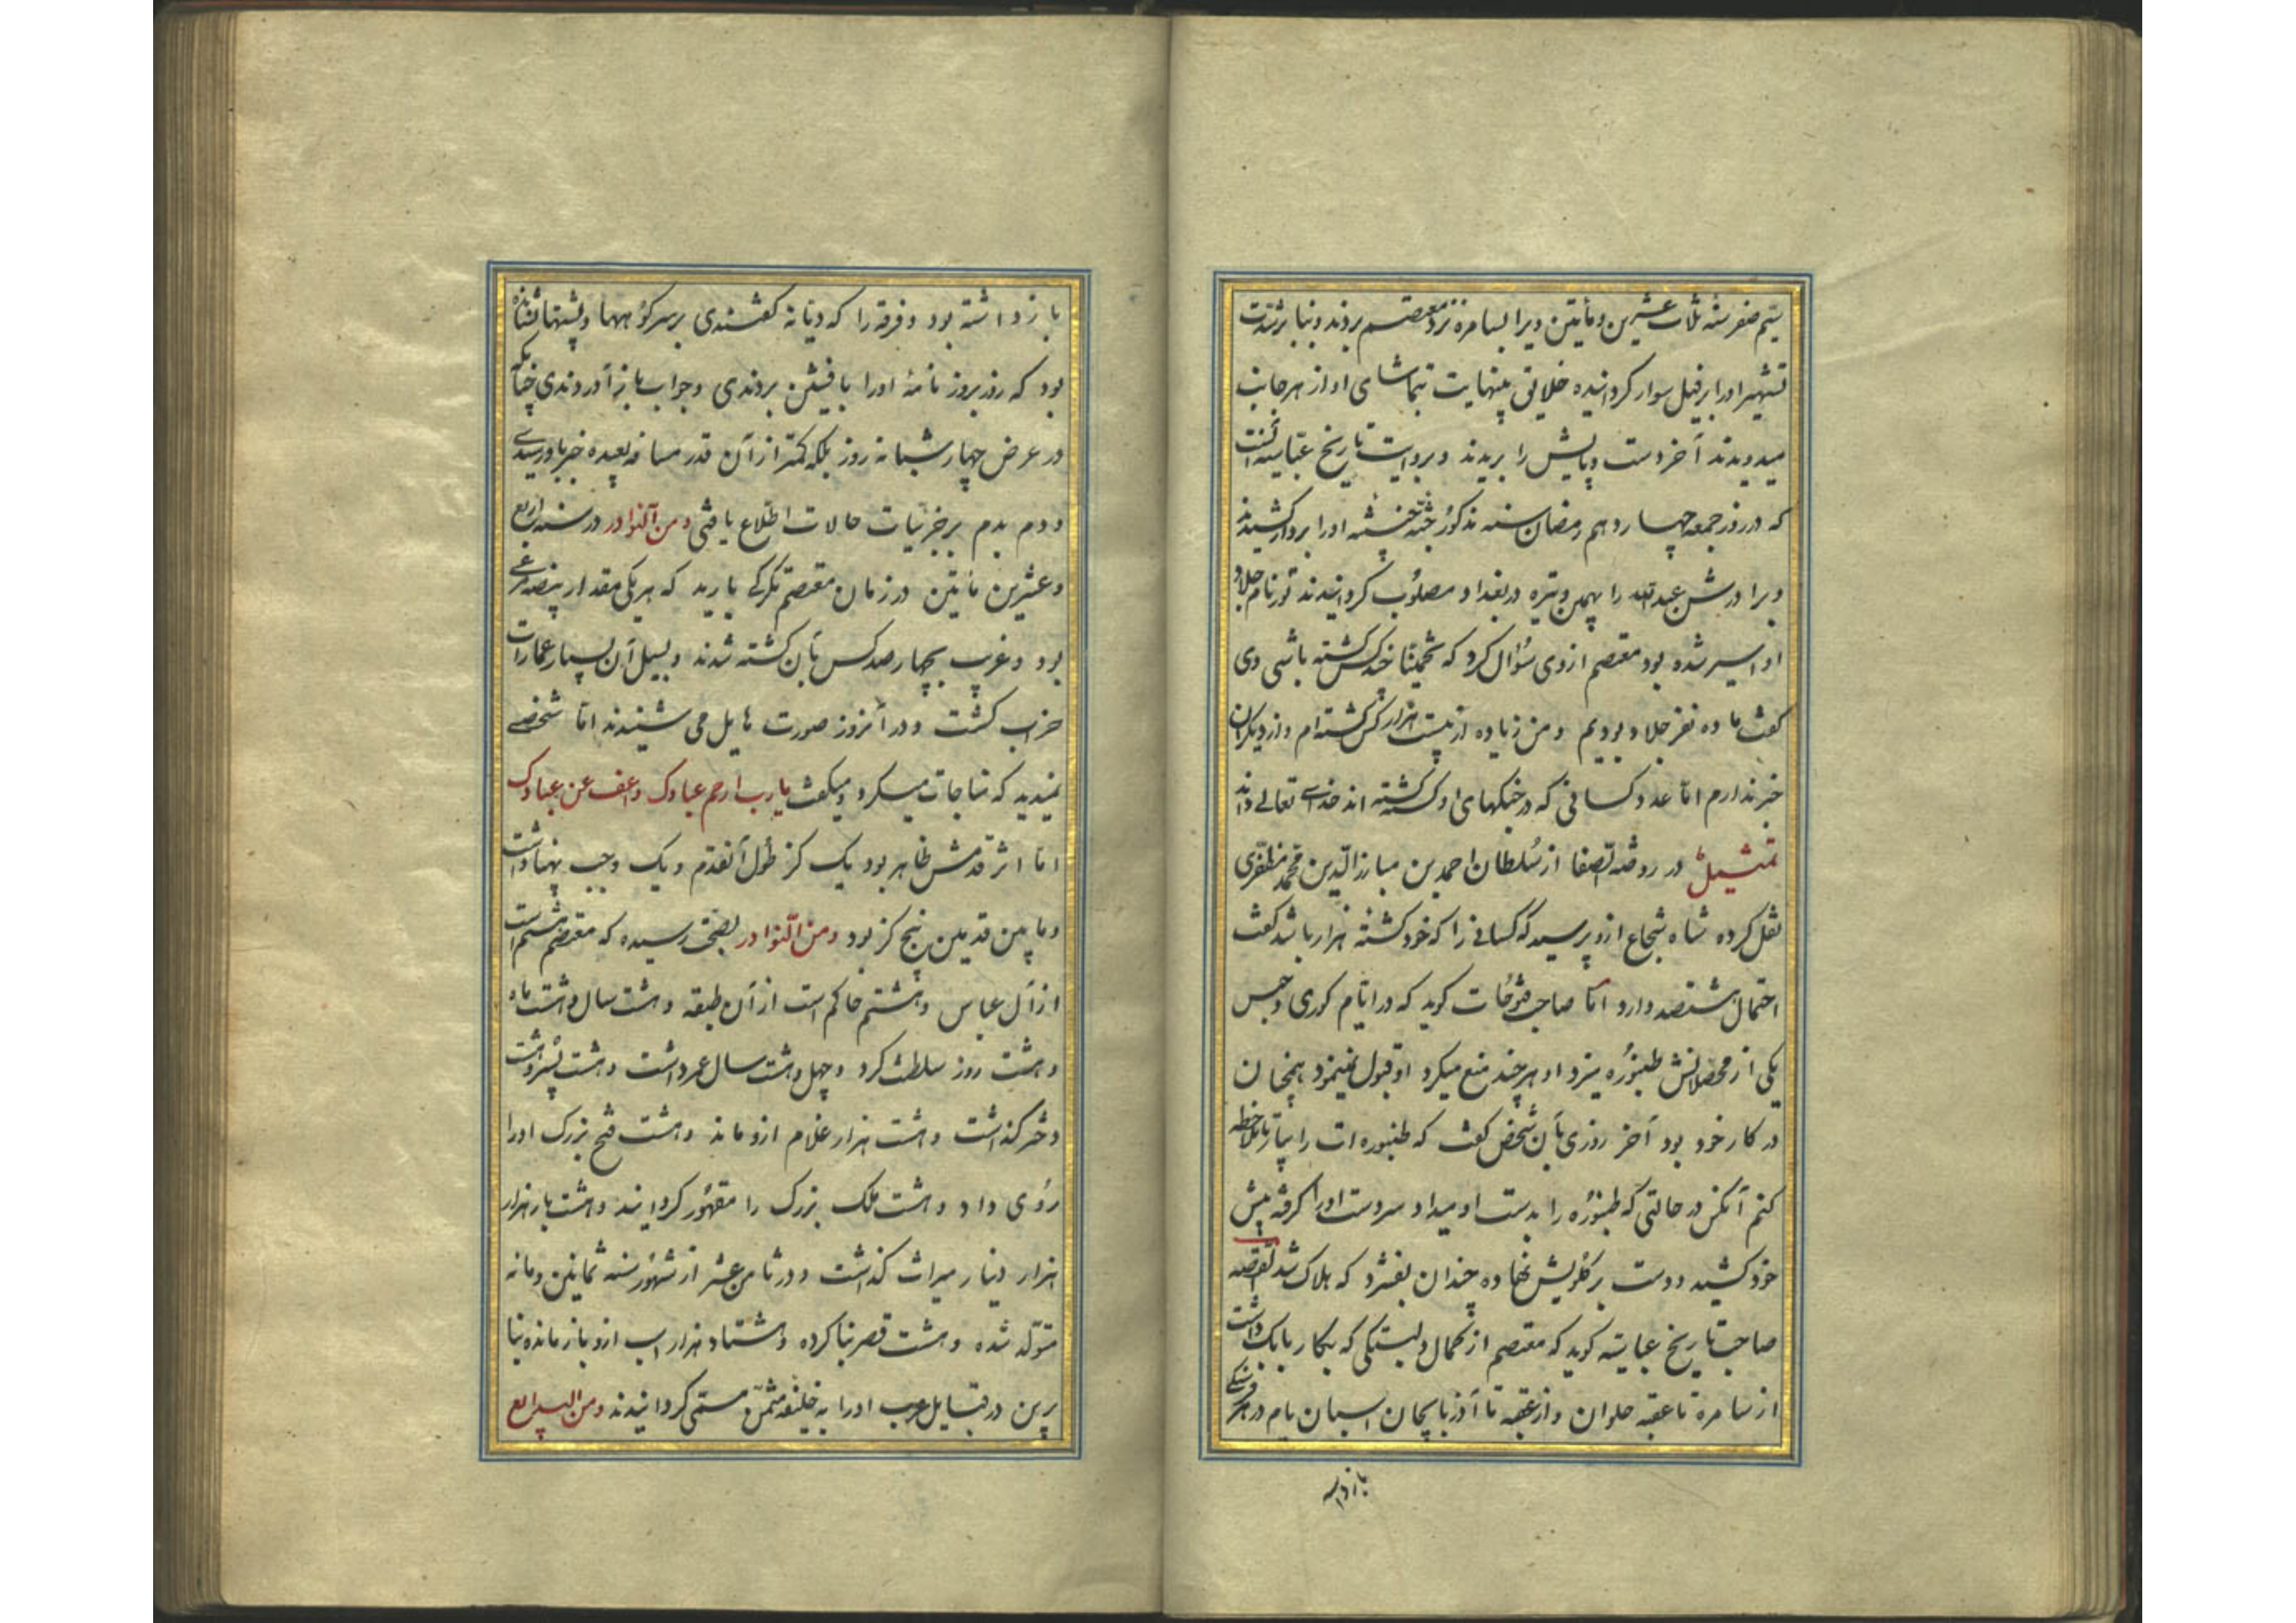 سیم صفر سنه ثلاث عشرین و مأتین ویرا بسامره نزد معتصم بردند و بنا بر شدت
تشهیر اورا بر فیل سوار کردانیده خلایق بینهایت بتماشای او از هر جانب
میدویدند آخر دست و پایش را بریدند و بروایت تاریخ عباسیه آنست
که در روز جمعه چهاردهم رمضان سنه مذکور جثه او را بردار کشیدند
و برادرش عبدالله را بهمین وتیره در بغداد مصلوب کردانیدند نام جلاد
او اسیر شده بود معتصم ازوی سؤال کرد که تخمینا چند کس کشته باشی وی
کفت ما ده نفر جلاد بودیم و من زیاده از بیست هزار کس کشته‌ام و از دیکران
خبر ندارم اما عدد کسانی که در جنکهای او کشته اند خدای تعالی داند
تمثیل در روضه الصفا از سلطان احمد بن مبارز الدین محمد مظفری
نقل کرده شاه شجاع ازو پرسید که کسانی را که خود کشته هزار باشد کفت
احتمال هشتصد دارد اما صاحب فتوحات کوید که در ایام کوری و حبس
یکی از محصلانش طنبوره میزد او هر چند منع میکرد او قبول نمینمود همچنان
در کار خود بود آخر روزی بآن شخص کفت که طنبوره ات را بیار تا ملاحظه
کنم آنکس در حالتی که طنبوره را بدست او میداد سر دست اورا کرفته پیش
خود کشید و دست بر کلویش نهاده چندان بفشرد که هلاک شد القصه
صاحب تاریخ عباسیه کوید که معتصم از کمال دلبستکی که بکار بابک داشت
از سامره تا عقبه حلوان و از عقبه تا آذربایجان اسبان یام در هر فرسنکی
باز داشته
باز داشته بود و فرقه را که دیانه کفتندی بر سر کوهها و پشتها نشانده
بود که روز بروز نامهٔ اورا بافشین بردندی و جواب باز آوردندی
در عرض چهار شبانه روز بلکه کمتر از آن قدر مسافه بعیده خبر باو رسیدی
و دم بدم بر جزئیات حالات اطلاع یافتی و من النوادر در سنه اربع
و عشرین مأتین در زمان معتصم تکرکی بارید که هر یکی مقدار بیضه مرغی
بود و قریب بچهارصد کس بآن کشته شدند و بسیل آن بسیار عمارات
خراب کشت و در آنروز صورت هایل می شنیدند اما شخصی
نمیدید که مناجات میکرد و میکفت یا رب ارحم عبادک و اعف عن عبادک
اما اثر قدمش ظاهر بود یک کز طول آنقدم و یک وجب پهنا داشت
و مابین قدمین پنج کز بود و من النوادر بصحت رسیده که معتصم هشتم است
از آل عباس و هشتم حاکم است از آن طبقه و هشت سال و هشت ماه
و هشت روز سلطنت کرد و چهل و هشت سال عمر داشت و هشت پسر و هشت
دختر کذاشت و هشت هزار غلام ازو ماند و هشت فتح بزرک اورا
روی داد و هشت ملک بزرک را مقهور کردانید و هشت بار هزار
هزار دینار میراث کذاشت و در ثامن عشر از شهور سنه ثمانین و مائه
متولد شده و هشت قصر بنا کرده و هشتاد هزار اسب ازو باز مانده بنا
برین در قبایل عرب اورا به خلیفه مثمن مسمی کردانیدند و من البدایع